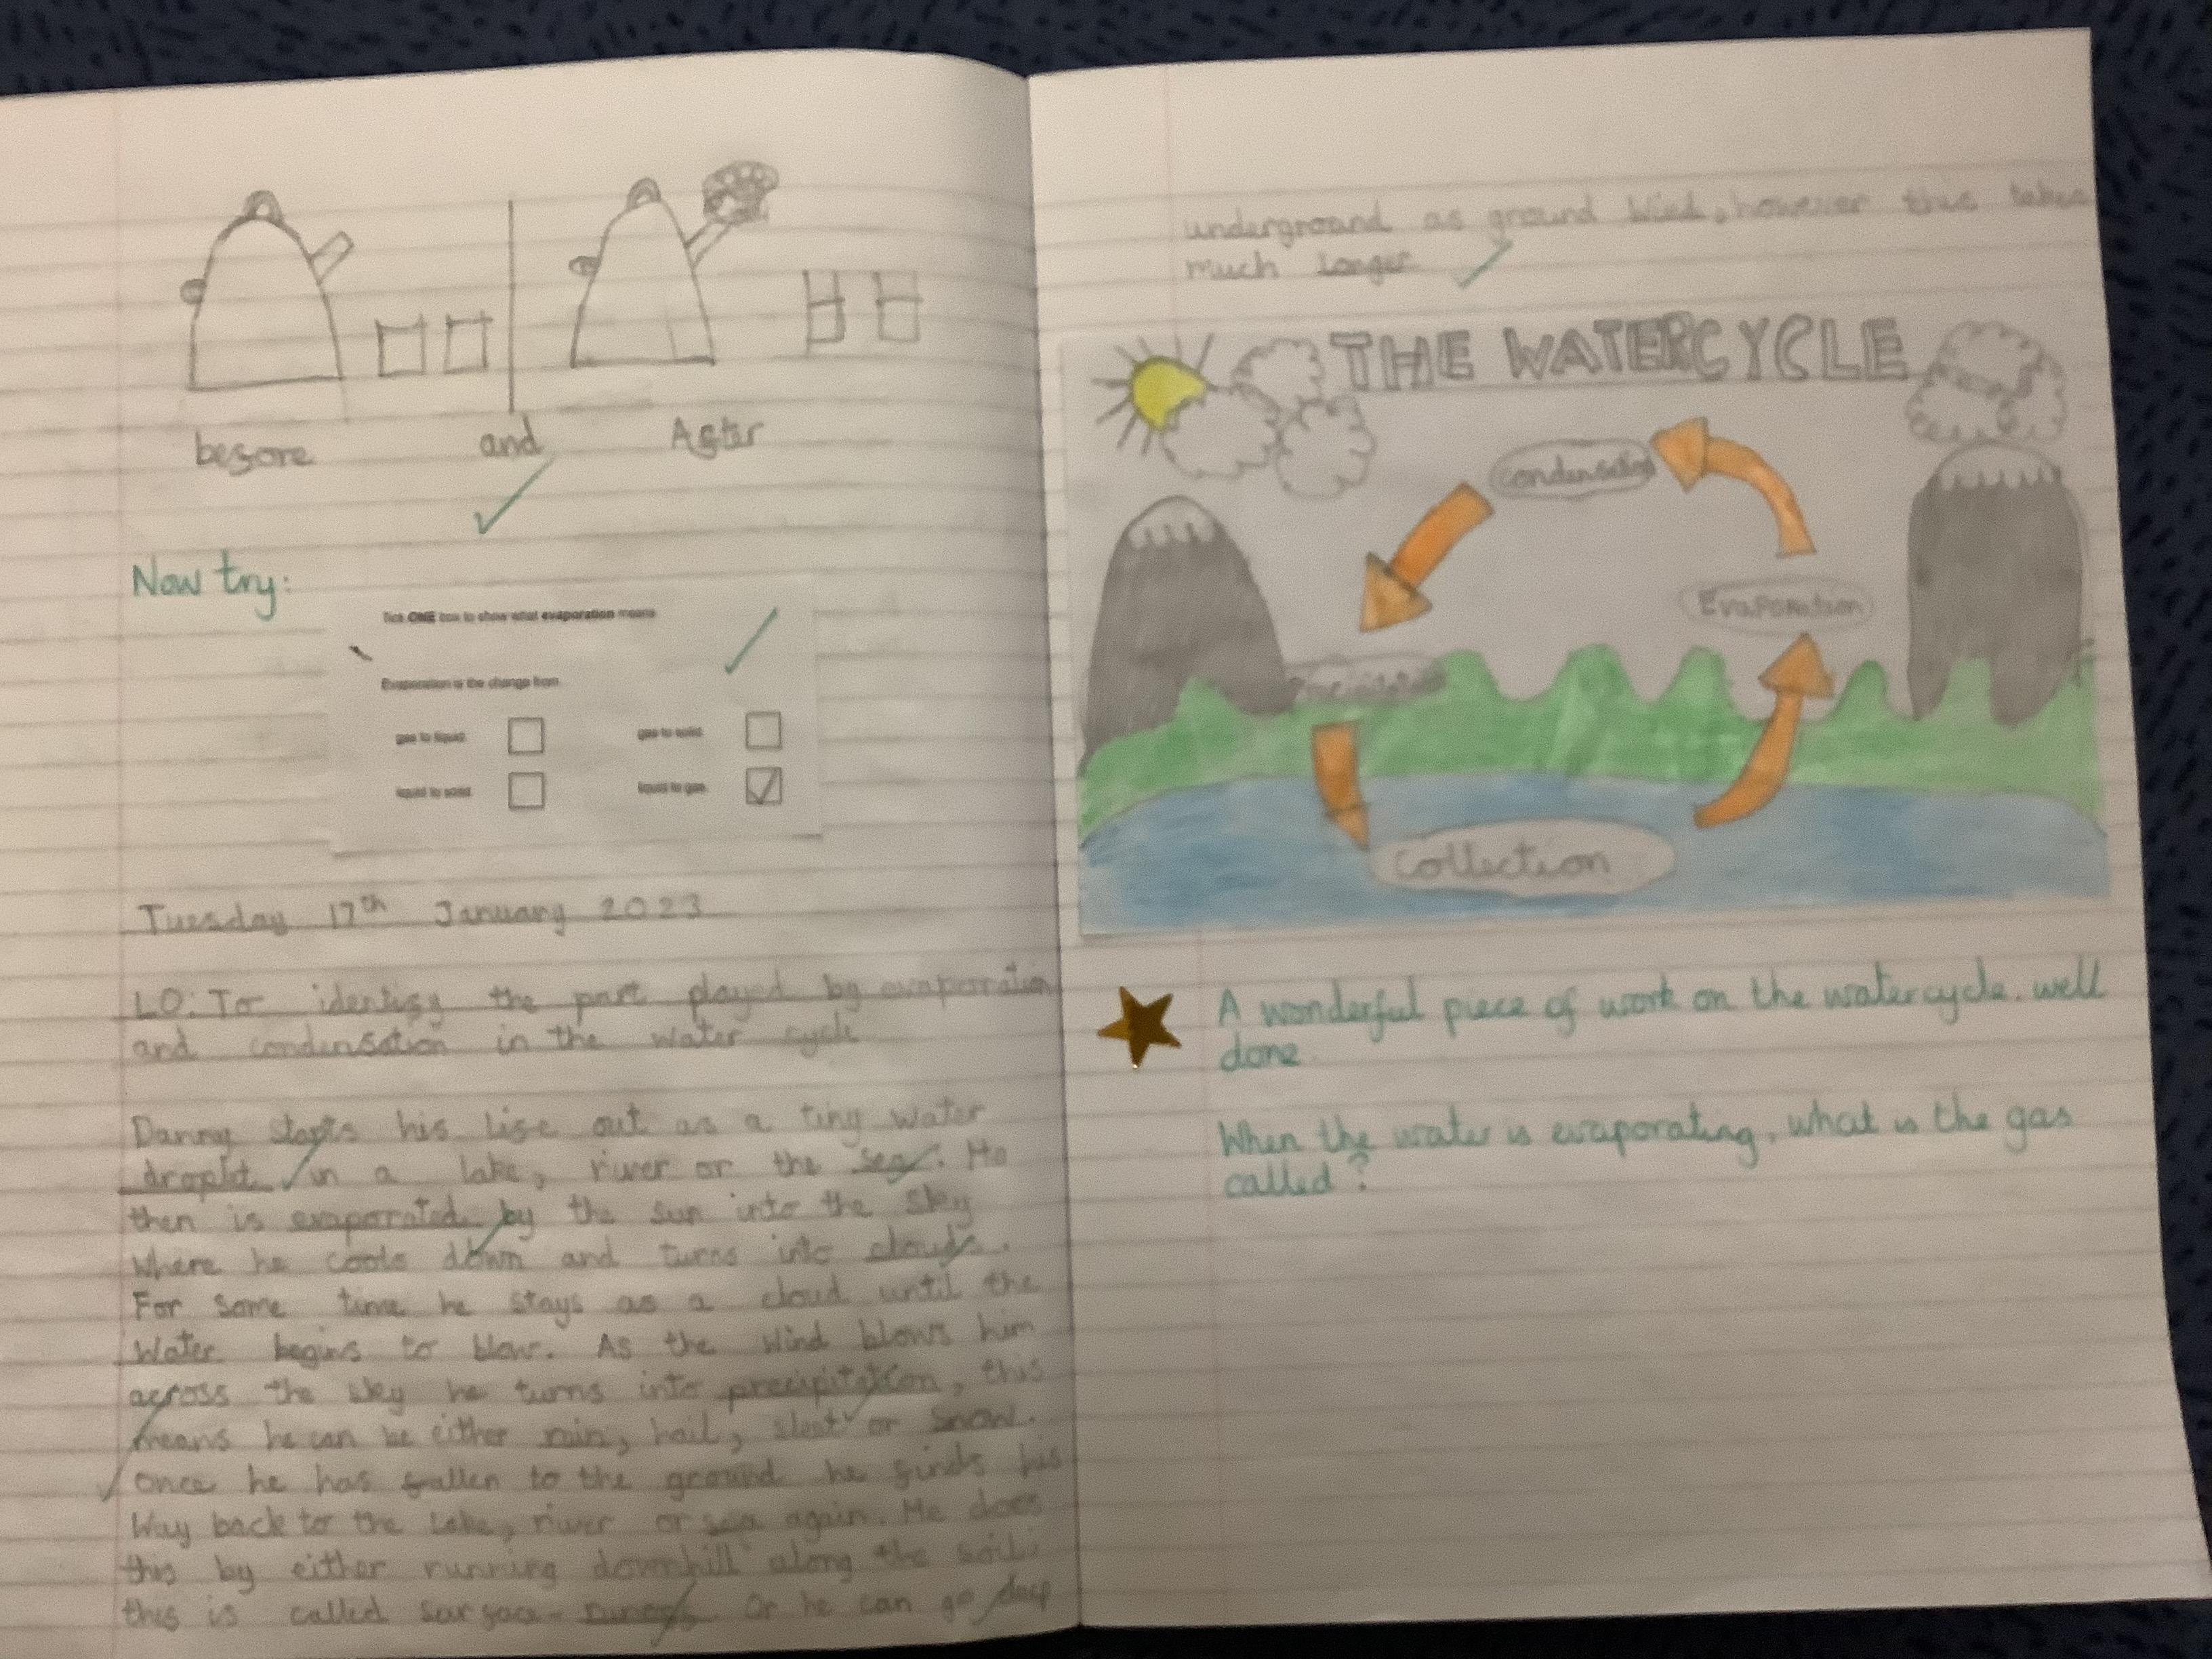 before and After
Now try:
Tick ONE box to show what evaporation means
Evaporation is the change from
gas to liquid gas to solid
liquid to solid liquid to gas
Tuesday 17th January 2023
LO: To identify the part played by evaporation
and condensation in the water cycle
Danny starts his life out as a tiny water
droplet in a lake, river or the sea. He
then is evaporated by the sun into the sky
Where he cools down and turns into clouds.
For some time he stays as a cloud until the
Water begins to blow. As the wind blows him
across the sky he turns into precipitation, this
means he can be either rain, hail, sleet or snow.
Once he has fallen to the ground he finds his
Way back to the lake, river or sea again. He does
this by either running downhill along the soil
this is called surface- Or he can go deep
underground as ground Wind, however this takes
much longer
THE WATERCYCLE
condensation
Evaporation
Precipitation
Collection
A wonderful piece of work on the watercycle. well
done
When the water is evaporating, what is the gas
called?